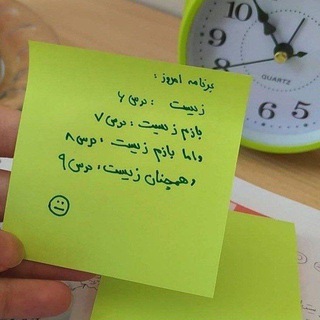 برنامه امروز :
زیست : درس ۶
بازم زیست : درس ۷
واما بازم زیست : درس ۸
وهمچنان زیست : درس ۹
12
1
2
3
4
5
6
QUARTZ